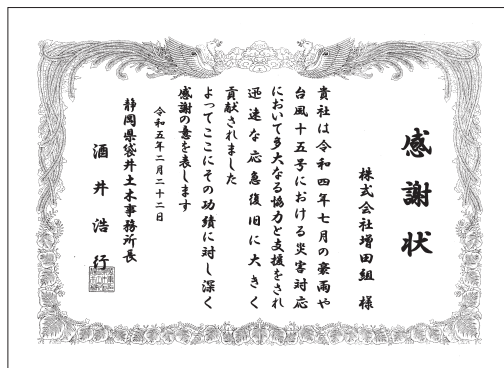 感謝状
株式会社増田組 様
貴社は令和四年七月の豪雨や
台風十五号における災害対応
において多大なる協力と支援をされ
迅速な応急復旧に大きく
貢献されました
よってここにその功績に対し深く
感謝の意を表します
令和五年二月二十二日
静岡県袋井土木事務所長
酒井浩行